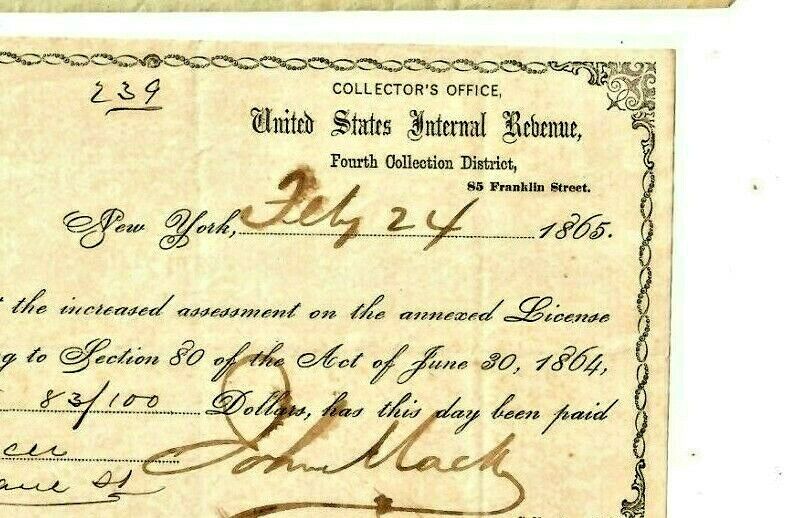 239
COLLECTOR'S OFFICE,
United States Internal Revenue,
Fourth Collection District,
85 Franklin Street.
New York, Feby 24 1865.
the increased assessment on the annexed License
to Section 80 of the Act of June 30, 1864,
83/100 Dollars, has this day been paid
John Mack
St